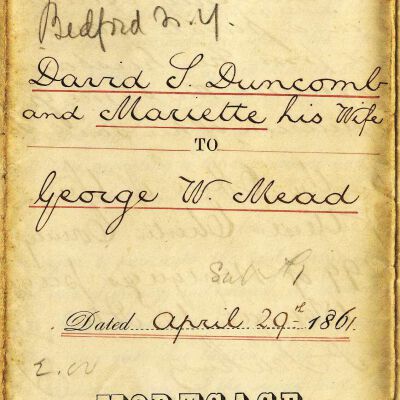 Bedford N.Y.
David S. Duncomb
and Mariette his Wife
TO
George W. Mead
Dated April 29th 1861
MORTGAGE